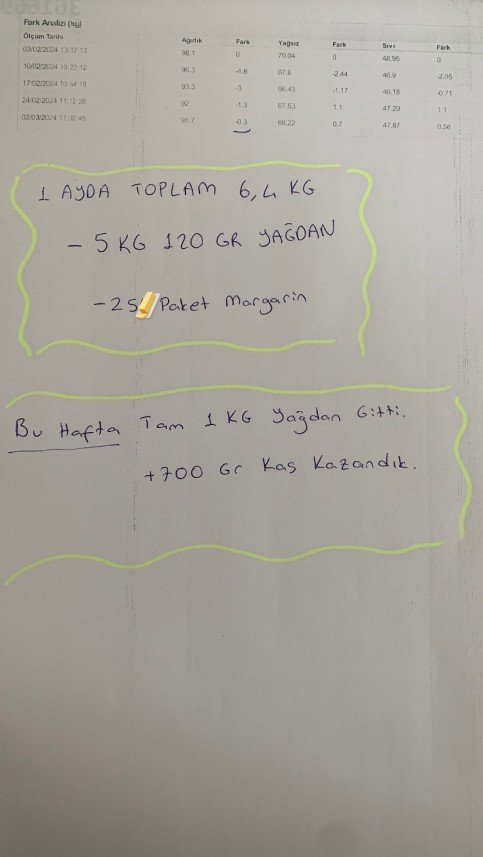 Fark Analizi (kg)
Ölçüm Tarihi Ağırlık Fark Yağsız Fark Sıvı Fark
03/02/2024 13:37:13 98.1 0 70.04 0 48.95 0
10/02/2024 10:23:12 96.3 -1.8 67.6 -2.44 46.9 -2.05
17/02/2024 10:54:18 93.3 -3 66.43 -1.17 46.18 -0.71
24/02/2024 11:12:26 92 -1.3 67.53 1.1 47.29 1.1
02/03/2024 11:02:48 91.7 -0.3 68.22 0.7 47.87 0.58
1 AYDA TOPLAM 6,4 KG
- 5 KG 120 GR YAĞDAN
- 25 Paket Margarin
Bu Hafta Tam 1 KG Yağdan Gitti.
+700 Gr Kas Kazandık.